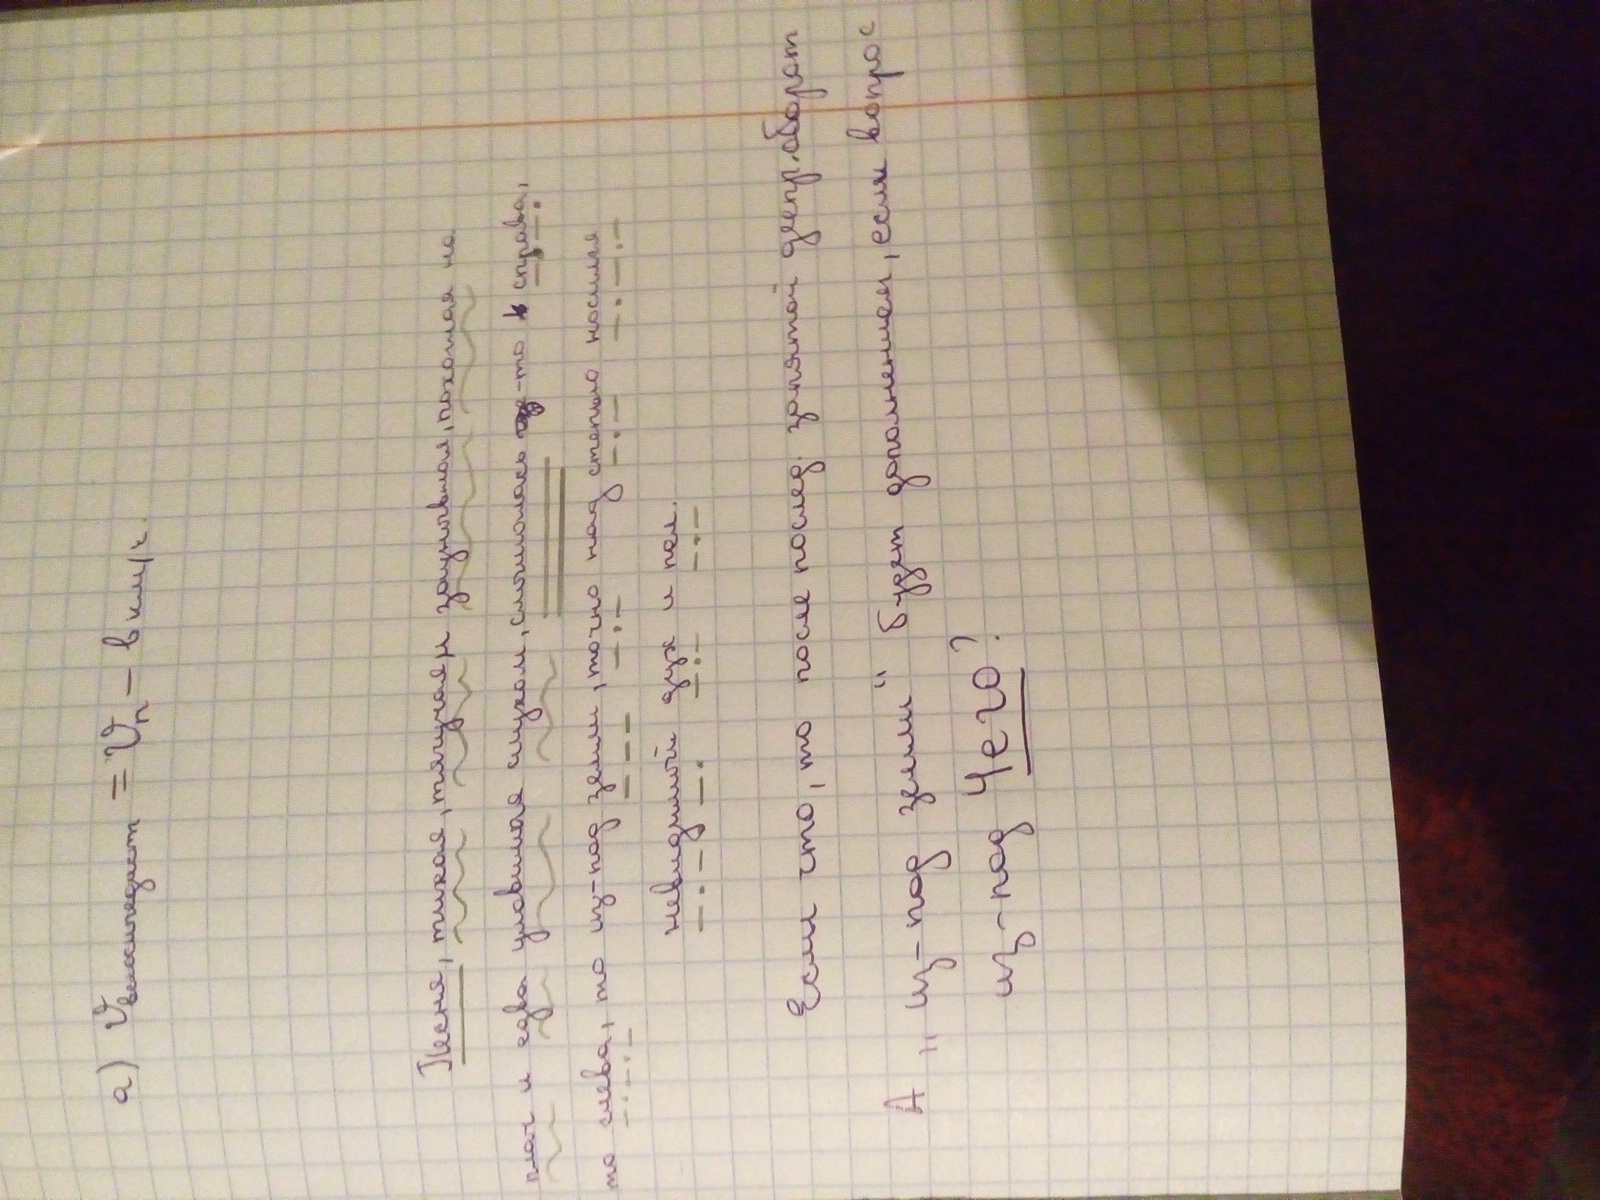 а) Vвелосипедист = Vп – в км/ч.
Песня, тихая, тягучая и заунывная, похожая на
плач и едва уловимая слухом, слышалась то справа,
то слева, то из-под земли, точно над степью носился
невидимый дух и пел.
Если что, то после послед. запятой деепр. оборот
А „из-под земли" будет дополнением, если вопрос
из-под Чего?